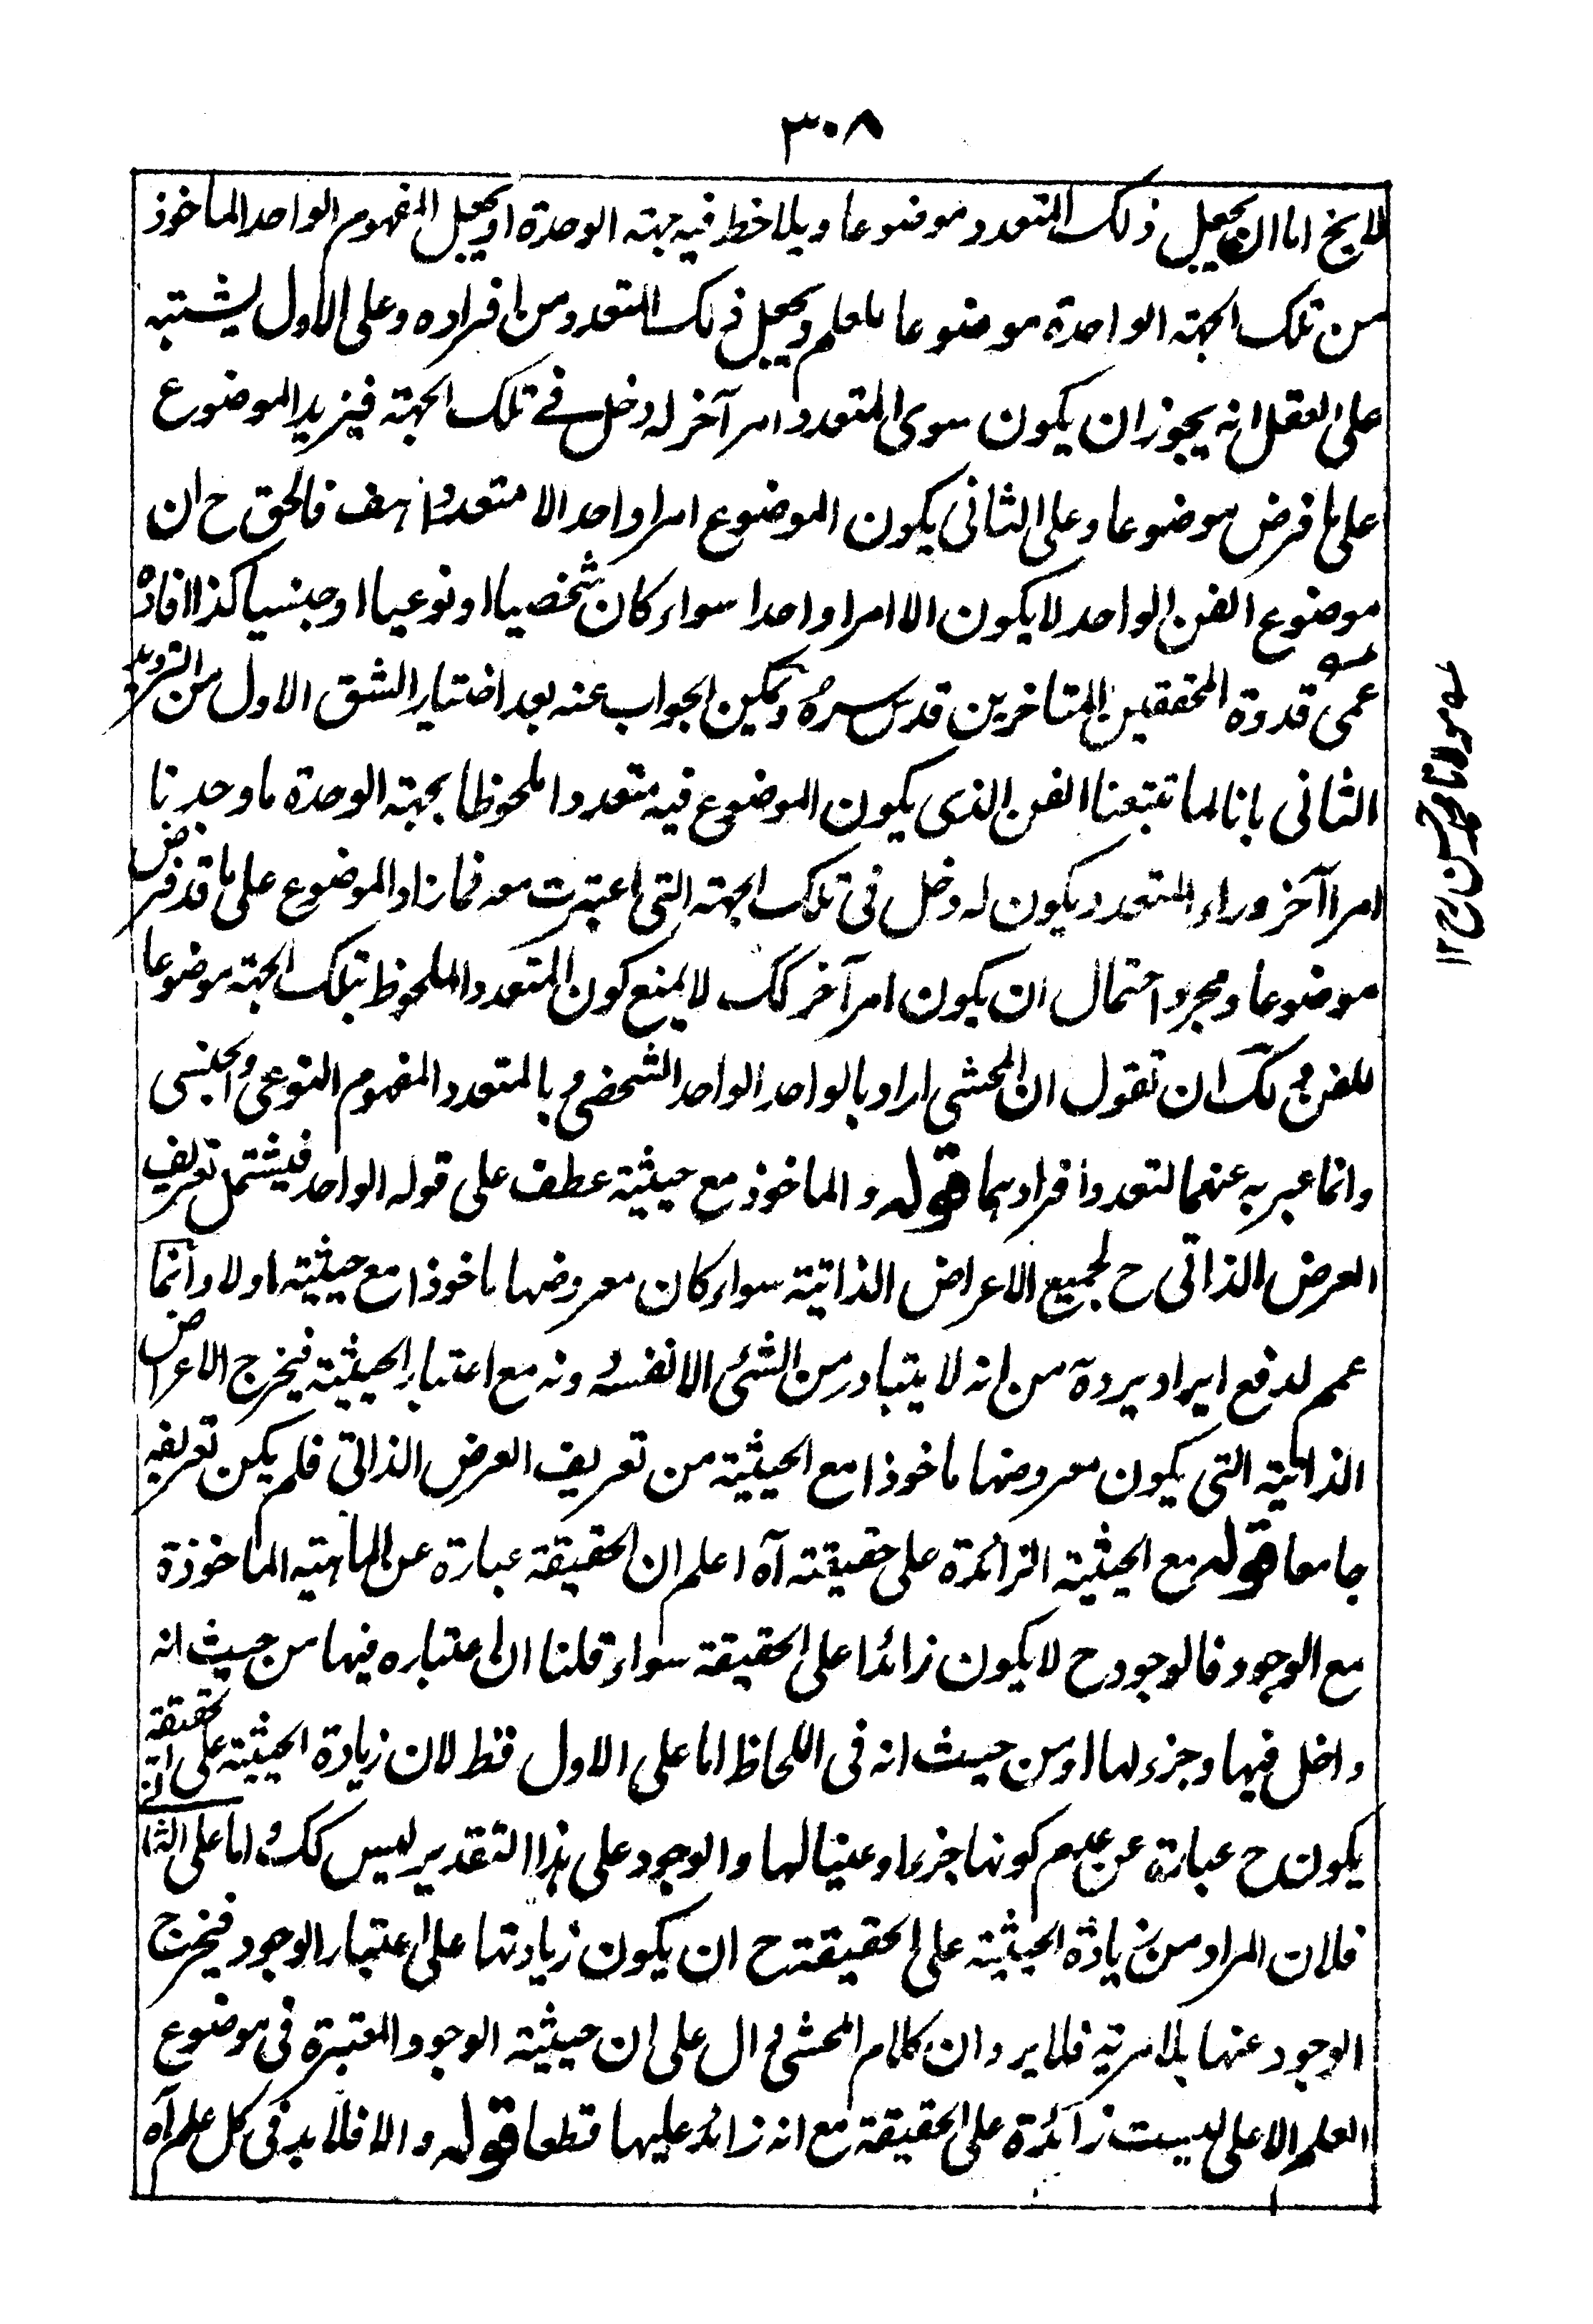 ٣٠٨
لا يخ اما ان يجعل ذلك المتعدد موضوعا ويلاحظ فيه جهته الوحدة او يجعل المفهوم الواحد الماخوذ
من تلك الجهته الواحدة موضوعا للعلم ويجعل ذلك المتعدد من افراده وعلى الاول يشتبه
على العقل انه يجوز ان يكون سوى المتعدد امر آخر له دخل فى تلك الجهته فيزيد الموضوع
على ما فرض موضوعا وعلى الثانى يكون الموضوع امرا واحدا لا متعددا هف فالحق ح ان
موضوع الفن الواحد لا يكون الا امرا واحدا سواء كان شخصيا او نوعيا او جنسيا كذا افاده
عمى قدوة المحققين المتاخرين قدس سره ويمكن الجواب عنه بعد اختيار الشق الاول من الترديد
الثانى بانا لما تتبعنا الفن الذى يكون الموضوع فيه متعددا ملحوظا بجهته الوحدة ما وجدنا
امرا آخر وراء المتعدد يكون له دخل فى تلك الجهته التى اعتبرت معه فما زاد الموضوع على ما قد فرض
موضوعا ومجرد احتمال ان يكون امر آخر كك لا يمنع كون المتعدد الملحوظ بتلك الجهته موضوعا
للفن ولك ان تقول ان المحشى اراد بالواحد الواحد الشخصى وبالمتعدد المفهوم النوعى والجنسى
وانما عبر به عنهما لتعدد افرادهما قوله والماخوذ مع حيثية عطف على قوله الواحد فيشتمل تعريف
العرض الذاتى ح لجميع الاعراض الذاتية سواء كان معروضها ماخوذا مع حيثيته او لا وانما
عمم لدفع ايراد يرده من انه لا يتبادر من الشئ الا نفسه دونه مع اعتبار الحيثية فيخرج الاعراض
الذاتية التى يكون معروضها ماخوذا مع الحيثية من تعريف العرض الذاتى فلم يكن تعريفه
جامعا قوله مع الحيثية الزائدة على حقيقته آه اعلم ان الحقيقة عبارة عن الماهيته الماخوذة
مع الوجود فالوجود ح لا يكون زائدا على الحقيقة سواء قلنا ان اعتباره فيها من حيث انه
داخل فيها وجزء لها او من حيث انه فى اللحاظ اما على الاول فقط لان زيادة الحيثية على الحقيقة
يكون ح عبارة عن عدم كونها جزءا وعينا لها والوجود على هذا التقدير ليس كك واما على الثانى
فلان المراد من زيادة الحيثية على الحقيقته ح ان يكون زيادتها على اعتبار الوجود فيخرج
الوجود عنها بلا مرية فلا يرد ان كلام المحشى دال على ان حيثية الوجود المعتبرة فى موضوع
العلم الاعلى ليست زائدة على الحقيقة مع انه زائد عليها قطعا قوله والا فلا بد فى كل علم آه
مولانا محمد حسن رح ١٢